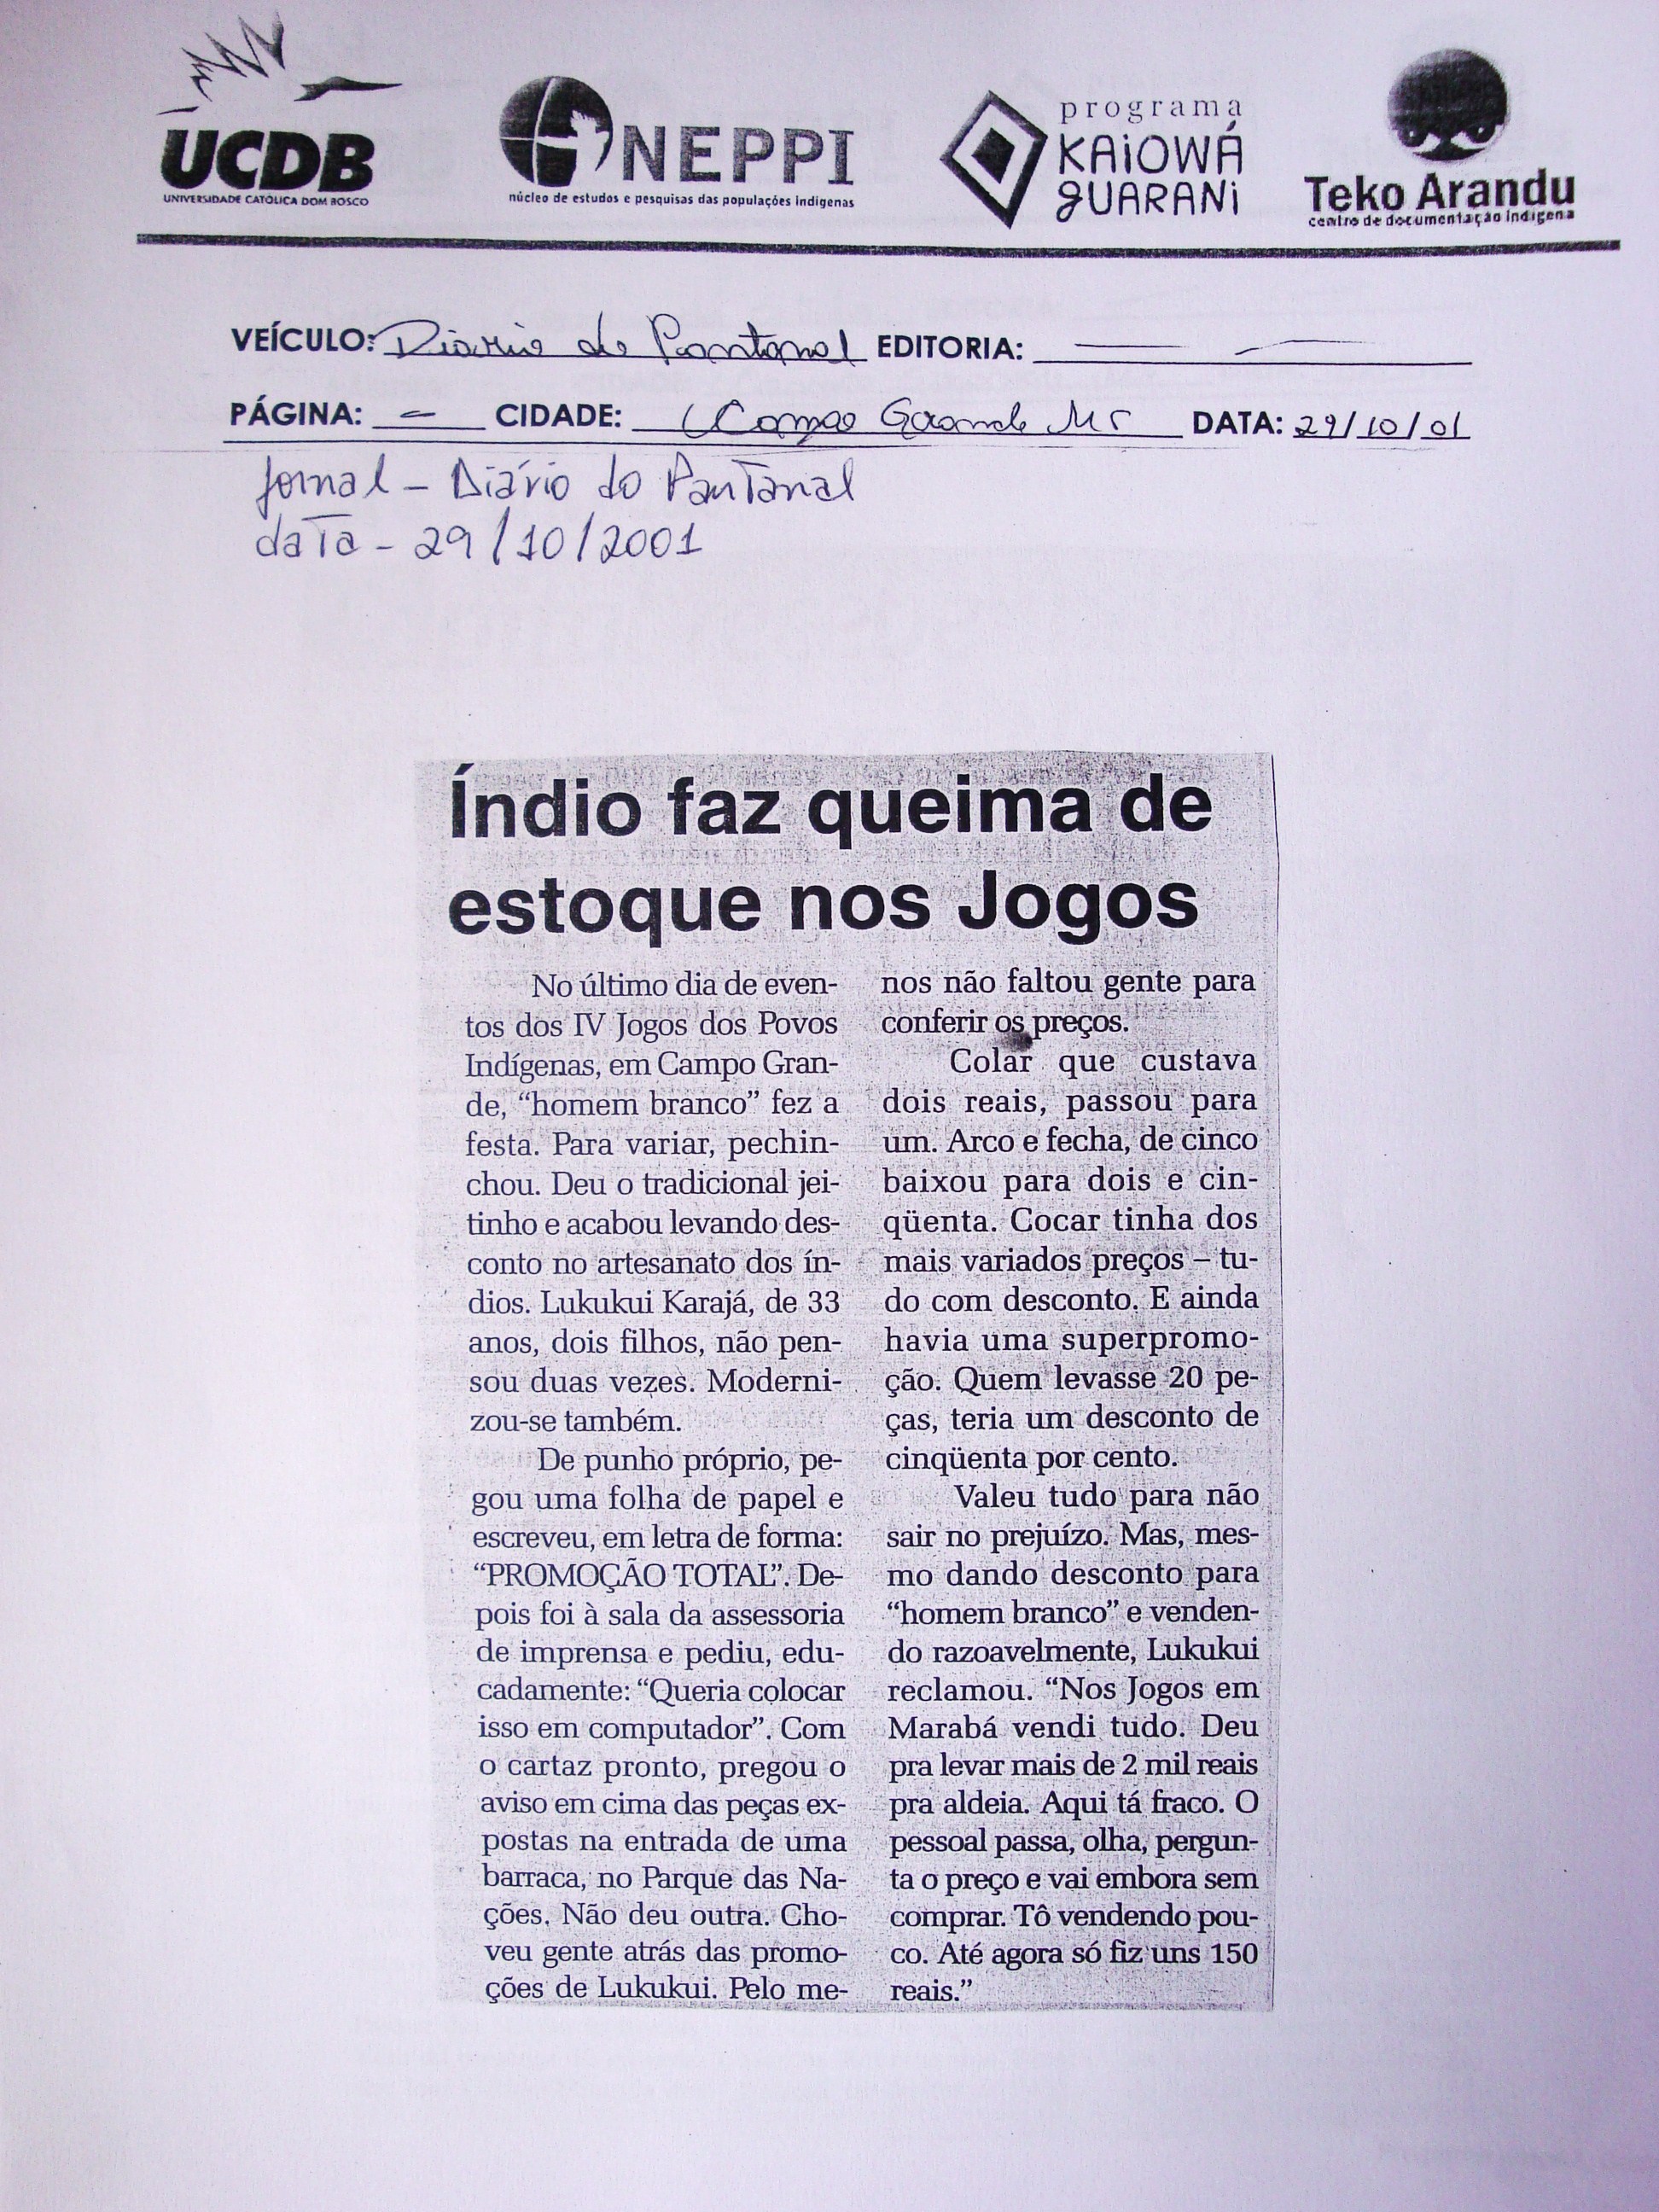 UCDB
UNIVERSIDADE CATÓLICA DOM BOSCO
NEPPI
núcleo de estudos e pesquisas das populações indígenas
programa
KAIOWÁ
GUARANI
Teko Arandu
centro de documentação indígena
VEÍCULO: Diario do Pantanal EDITORIA:
PÁGINA: — CIDADE: Campo Grande MS DATA: 29/10/01
Jornal - Diário do Pantanal
data - 29/10/2001
Índio faz queima de
estoque nos Jogos
No último dia de even-
tos dos IV Jogos dos Povos
Indígenas, em Campo Gran-
de, “homem branco” fez a
festa. Para variar, pechin-
chou. Deu o tradicional jei-
tinho e acabou levando des-
conto no artesanato dos ín-
dios. Lukukui Karajá, de 33
anos, dois filhos, não pen-
sou duas vezes. Moderni-
zou-se também.
De punho próprio, pe-
gou uma folha de papel e
escreveu, em letra de forma:
“PROMOÇÃO TOTAL”. De-
pois foi à sala da assessoria
de imprensa e pediu, edu-
cadamente: “Queria colocar
isso em computador”. Com
o cartaz pronto, pregou o
aviso em cima das peças ex-
postas na entrada de uma
barraca, no Parque das Na-
ções. Não deu outra. Cho-
veu gente atrás das promo-
ções de Lukukui. Pelo me-
nos não faltou gente para
conferir os preços.
Colar que custava
dois reais, passou para
um. Arco e fecha, de cinco
baixou para dois e cin-
qüenta. Cocar tinha dos
mais variados preços – tu-
do com desconto. E ainda
havia uma superpromo-
ção. Quem levasse 20 pe-
ças, teria um desconto de
cinqüenta por cento.
Valeu tudo para não
sair no prejuízo. Mas, mes-
mo dando desconto para
“homem branco” e venden-
do razoavelmente, Lukukui
reclamou. “Nos Jogos em
Marabá vendi tudo. Deu
pra levar mais de 2 mil reais
pra aldeia. Aqui tá fraco. O
pessoal passa, olha, pergun-
ta o preço e vai embora sem
comprar. Tô vendendo pou-
co. Até agora só fiz uns 150
reais.”